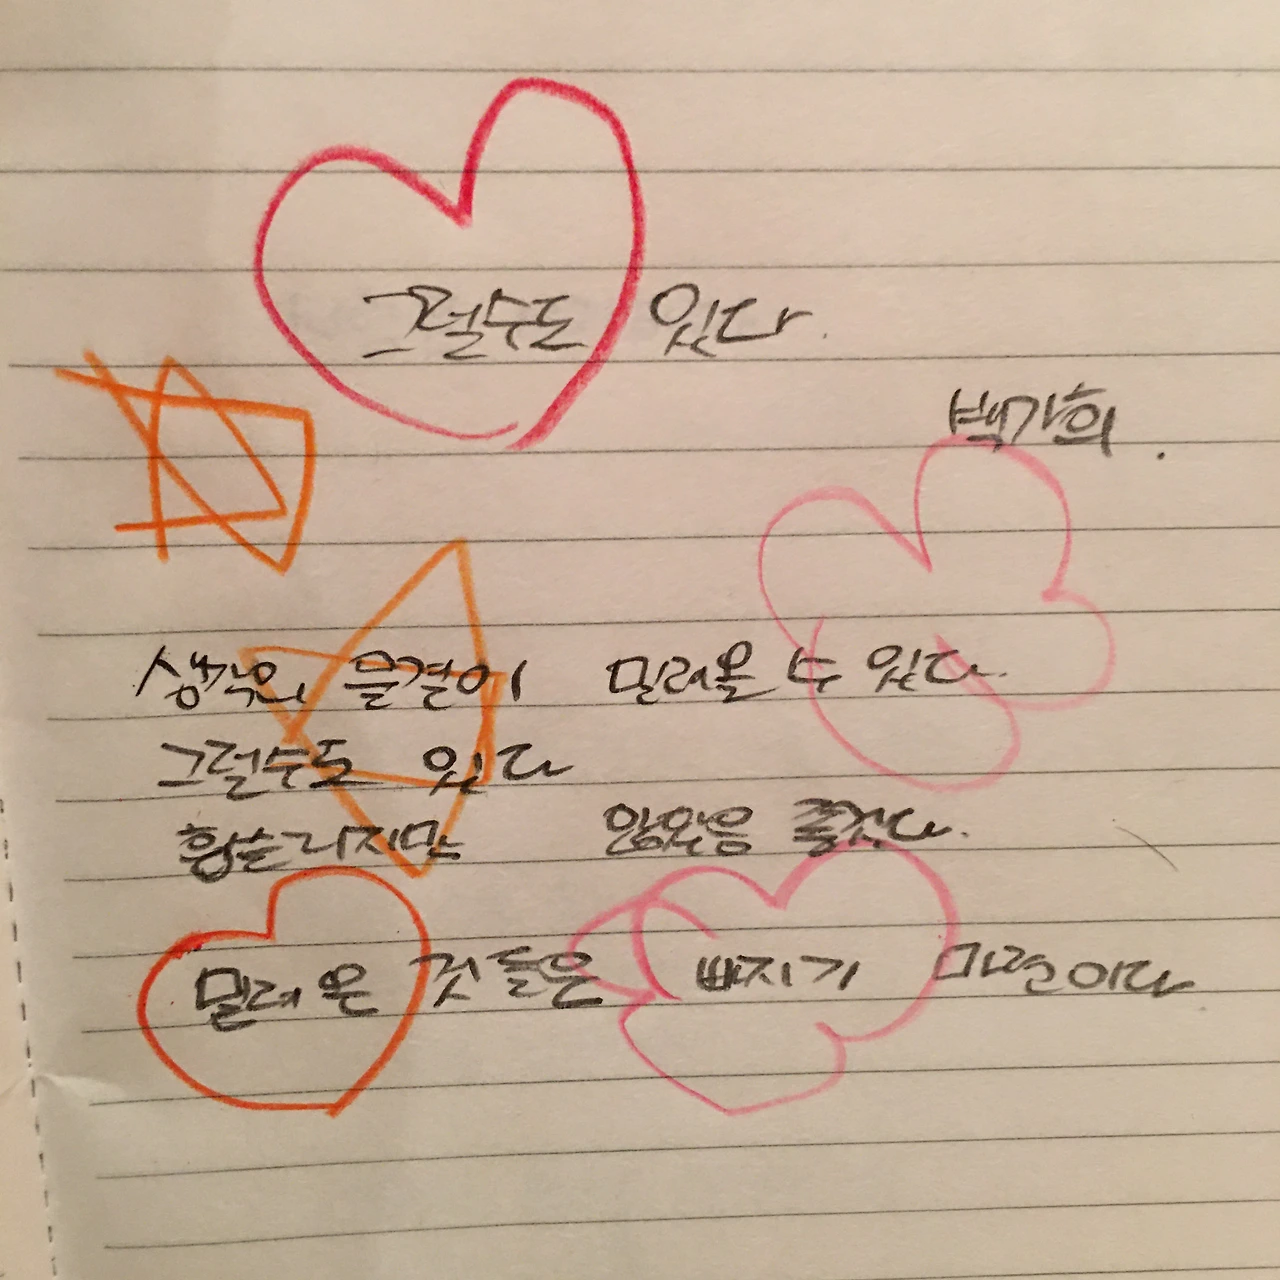 그럴수도 있다.
백가희.
생각의 물결이 밀려올 수 있다.
그럴수도 있다
휩쓸리지만 않았음 좋겠다.
밀려온 것들은 빠지기 마련이다